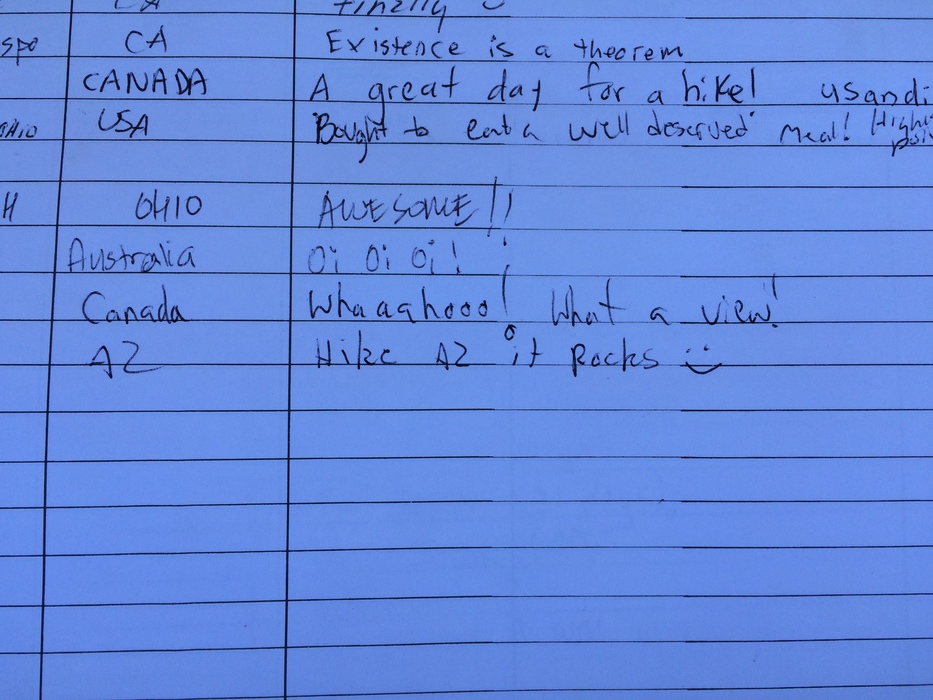 finally
spo CA Existence is a theorem
CANADA A great day for a hike! usandi
OHIO USA Bought to eat a well deserved meal! High
H OHIO AWESOME!!
Australia Oi Oi Oi!
Canada Whaaahooo! What a view!
AZ Hike AZ it Rocks